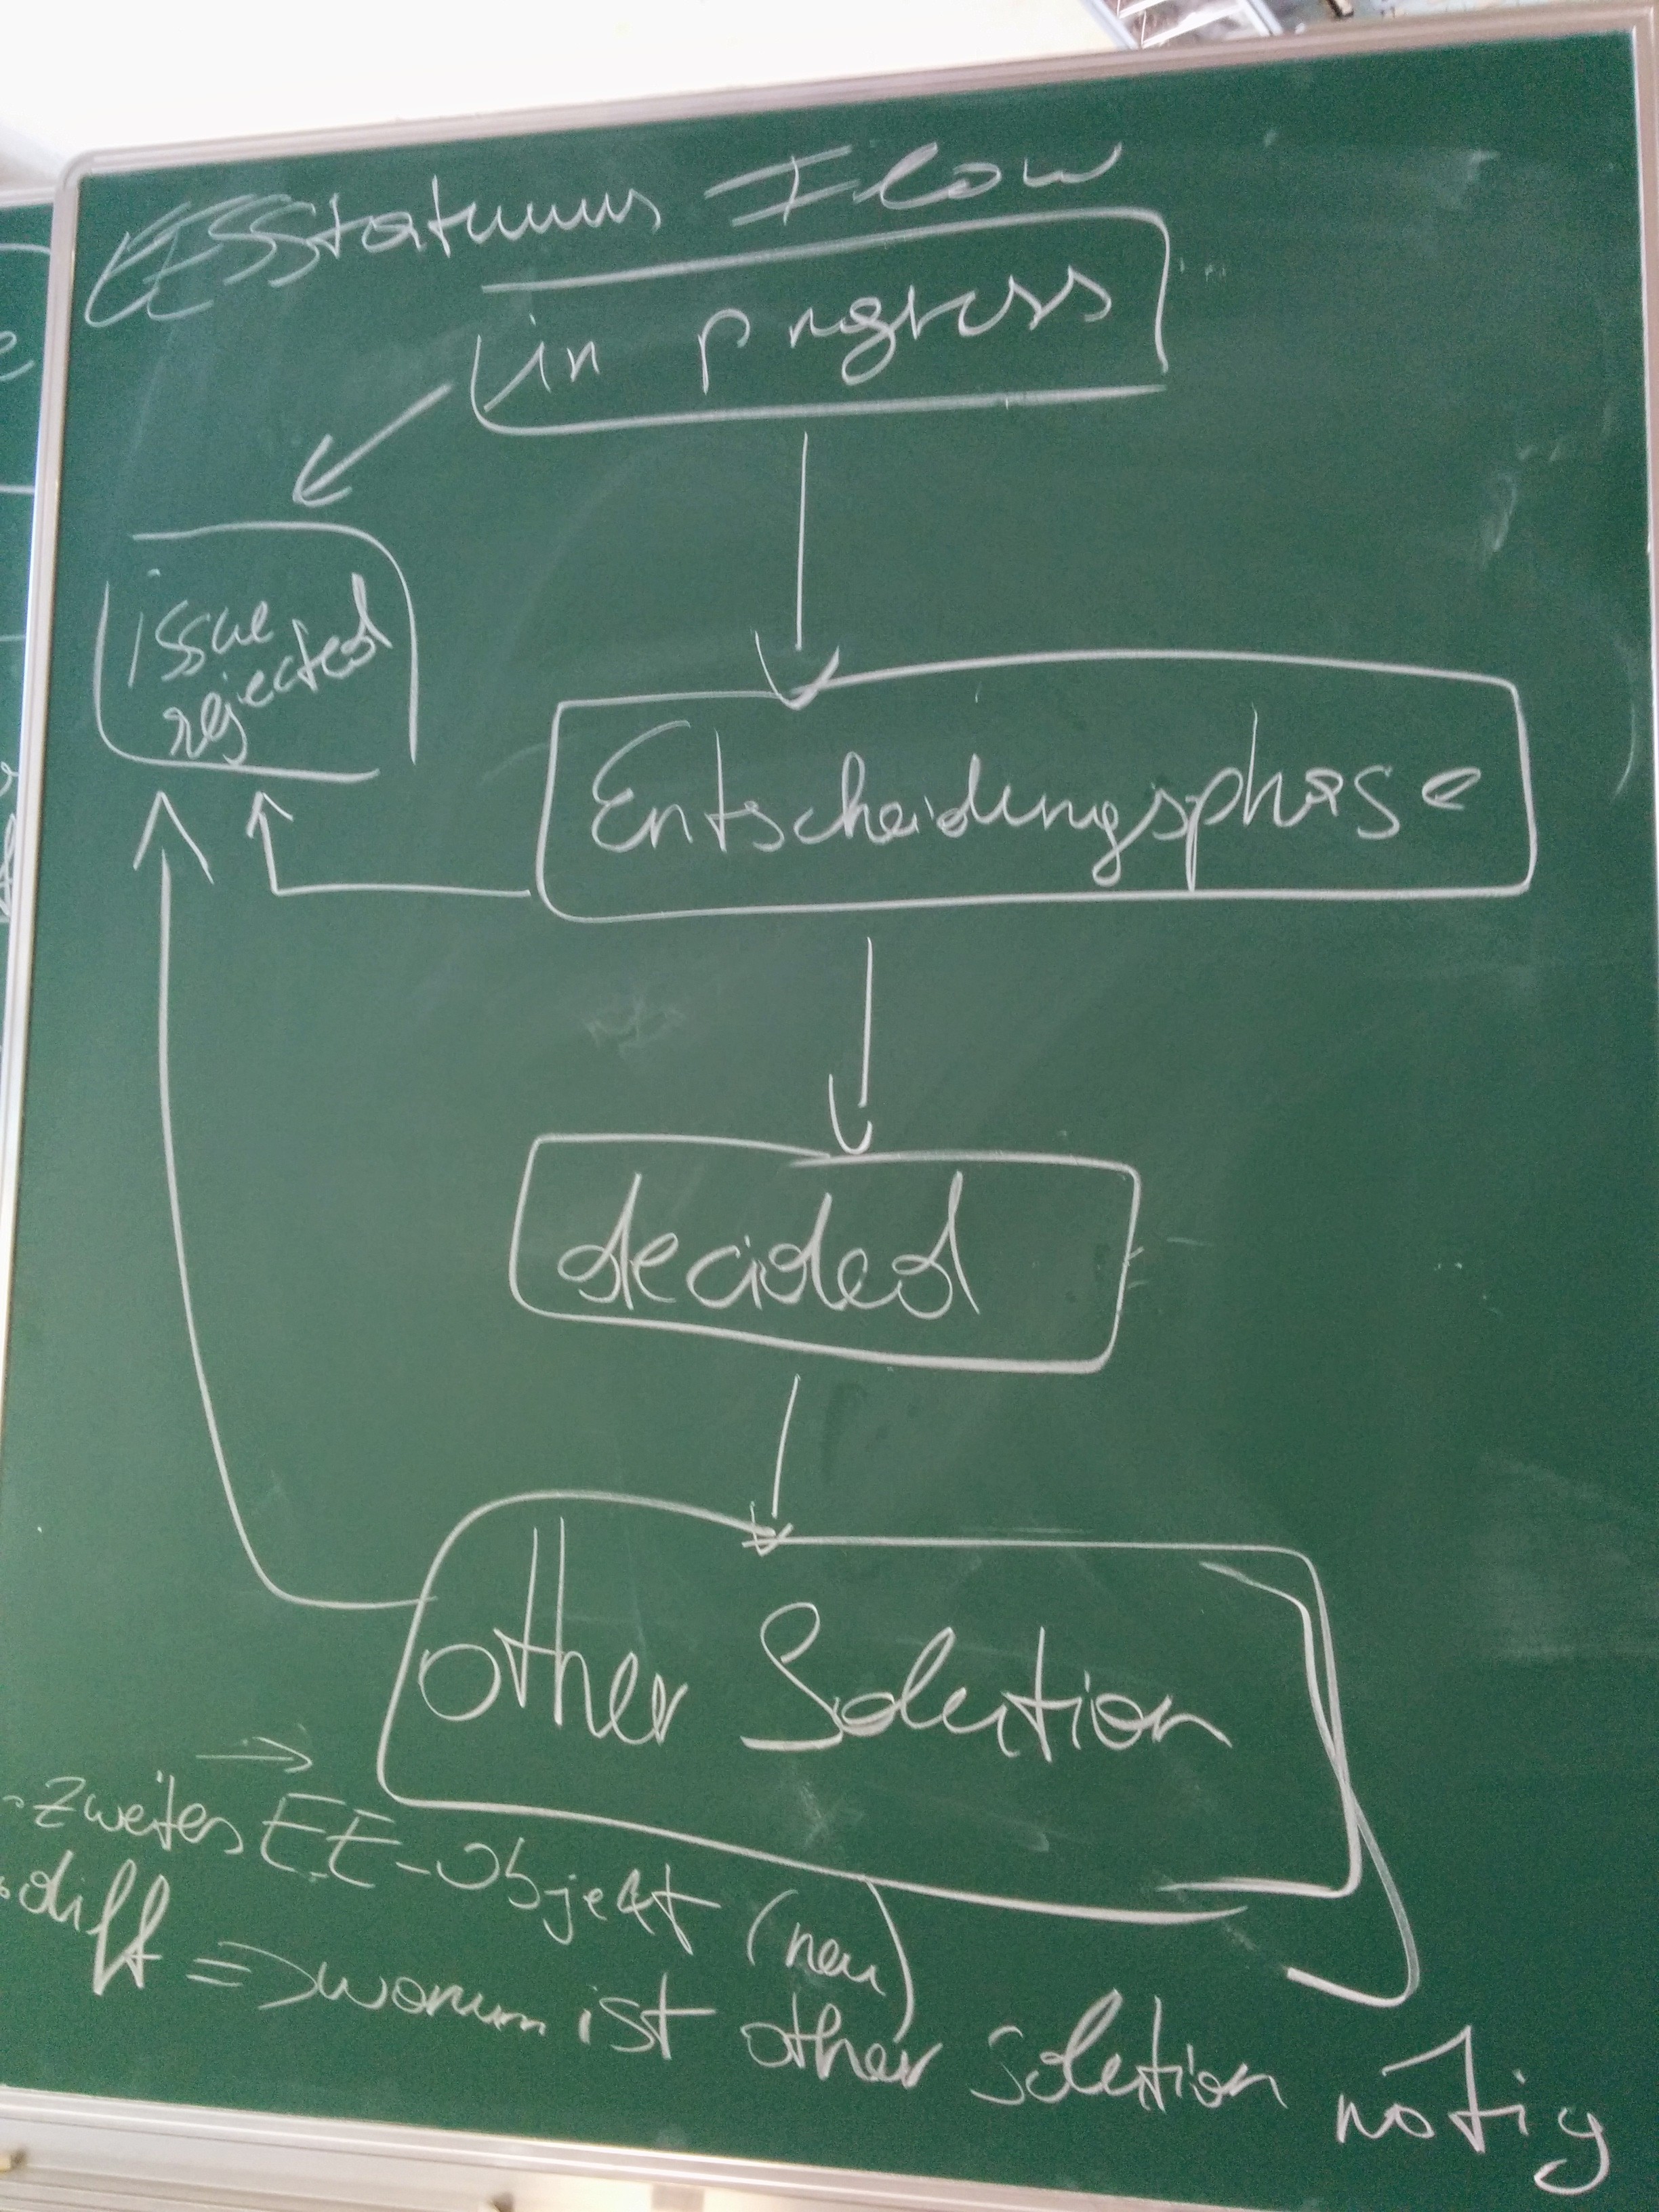 Flow
in progress
issue
rejected
Entscheidungsphase
decided
other Solution
- zweites EE-Objekt (neu)
diff => warum ist other solution nötig